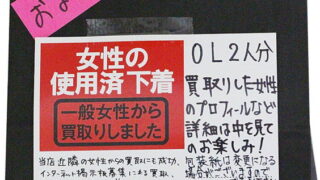 女性の
使用済下着
一般女性から
買取りしました
当店近隣の女性からの買取にも成功、
インターネット掲示板募集による買取、
OL2人分
買取りした女性
のプロフィールなど
詳細は中を見て
のお楽しみ!
包装紙は変更になる
場合がございますので